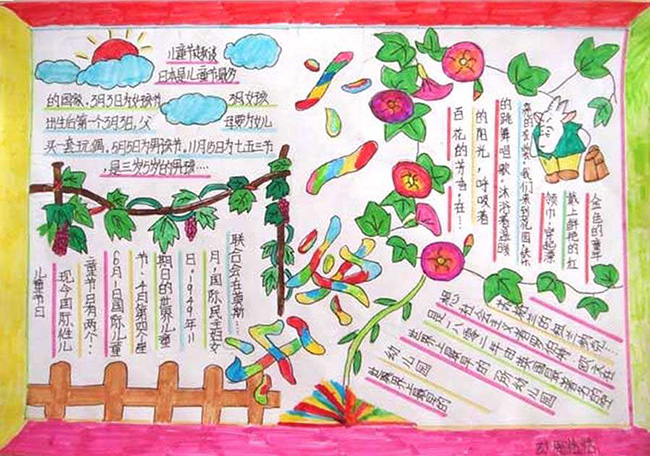 儿童节趣谈
日本是儿童节最多
的国家。3月3日为女孩节 3月女孩
出生后第一个3月3日，父 母要为幼儿
买一套玩偶，5月5日为男孩节，11月5日为七五三节
，是三岁5岁的男孩……
儿童节日
现今国际性儿
童节日有两个：
6月1日国际儿童
节、4日第四个星
期日的世界儿童
日。1949年11
月，国际民主妇女
联合会在莫斯…
金色的童年
戴上鲜艳的红
领巾，穿起漂
亮的衣裳，我们来到花园快乐
的跳舞唱歌。沐浴着温暖
的阳光，呼吸着
百花的芳香，在…
世界上最早的
幼儿园
世界上最早的一所幼儿园
是一八零二年由英国最著名的空
想社会主义者罗伯特·欧文在
苏格兰的纽兰纳……